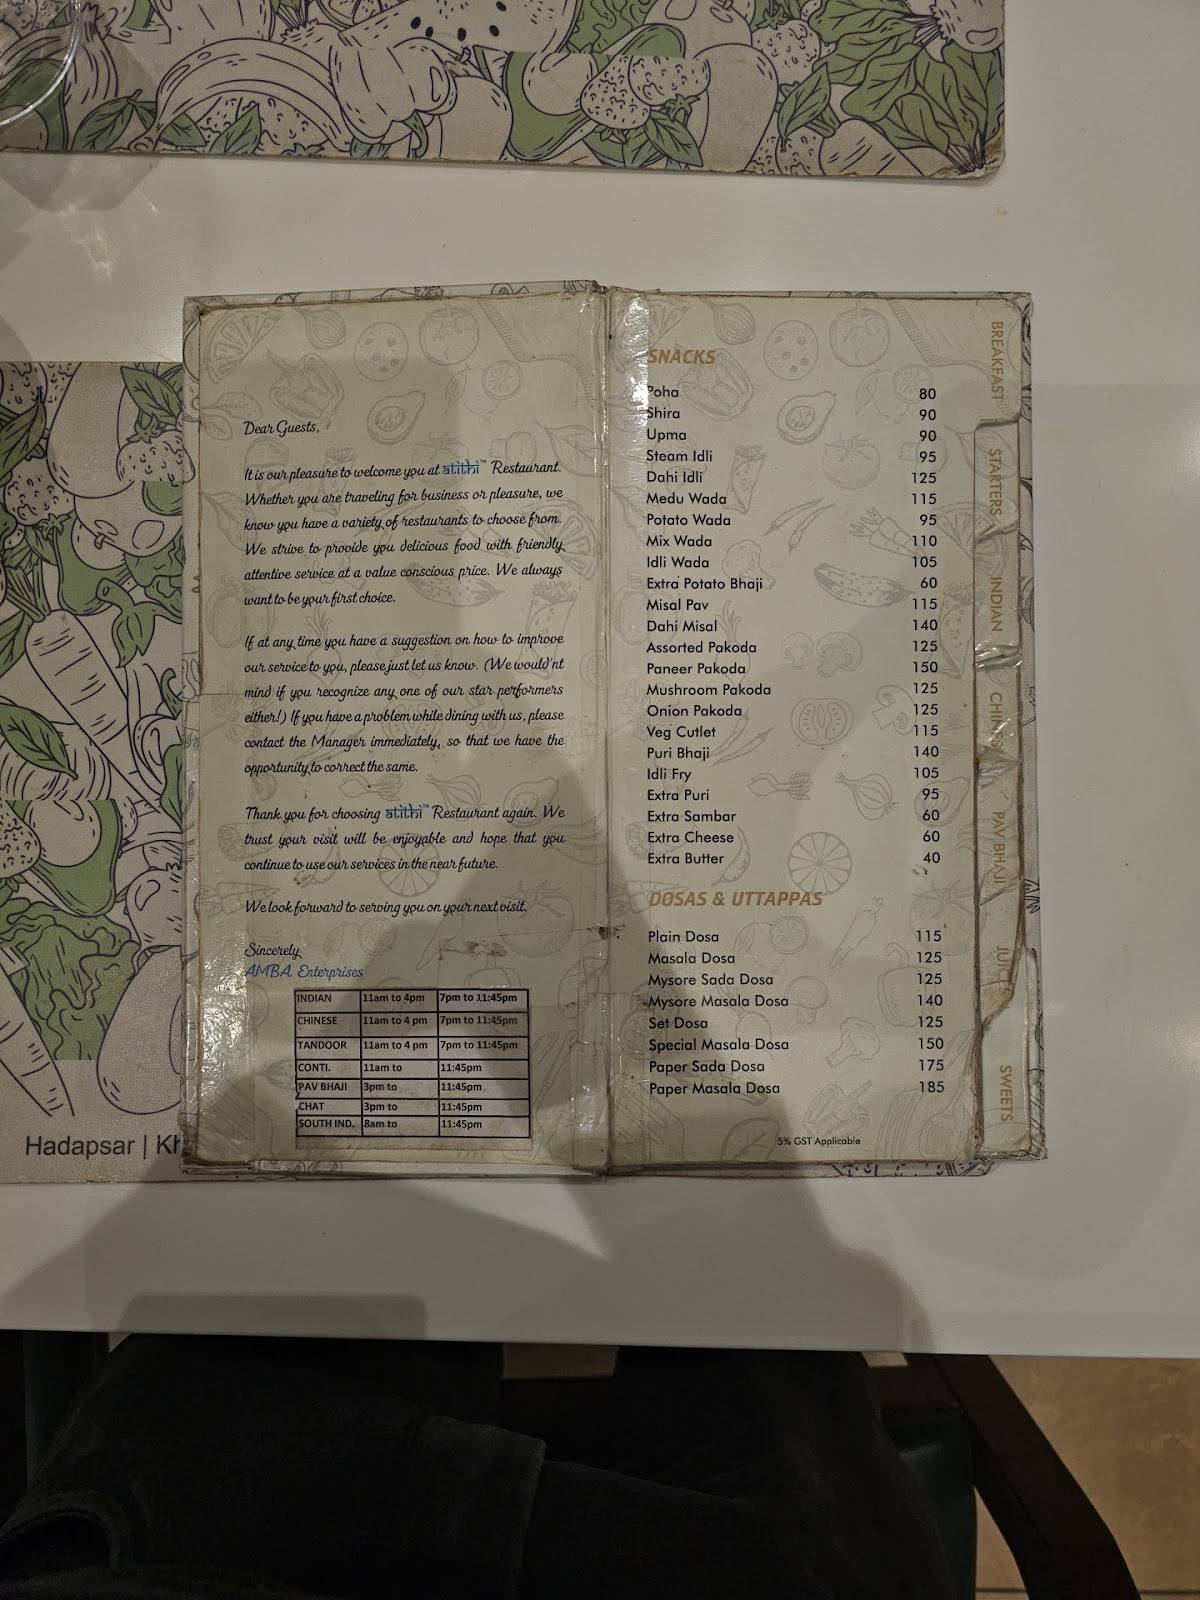 Dear Guests,
It is our pleasure to welcome you at atithi™ Restaurant.
Whether you are traveling for business or pleasure, we
know you have a variety of restaurants to choose from.
We strive to provide you delicious food with friendly,
attentive service at a value conscious price. We always
want to be your first choice.
If at any time you have a suggestion on how to improve
our service to you, please just let us know. (We would'nt
mind if you recognize any one of our star performers
either!) If you have a problem while dining with us, please
contact the Manager immediately, so that we have the
opportunity to correct the same.
Thank you for choosing atithi™ Restaurant again. We
trust your visit will be enjoyable and hope that you
continue to use our services in the near future.
We look forward to serving you on your next visit.
Sincerely
AMBA Enterprises
INDIAN 11am to 4pm 7pm to 11:45pm
CHINESE 11am to 4 pm 7pm to 11:45pm
TANDOOR 11am to 4 pm 7pm to 11:45pm
CONTI. 11am to 11:45pm
PAV BHAJI 3pm to 11:45pm
CHAT 3pm to 11:45pm
SOUTH IND. 8am to 11:45pm
SNACKS
Poha 80
Shira 90
Upma 90
Steam Idli 95
Dahi Idli 125
Medu Wada 115
Potato Wada 95
Mix Wada 110
Idli Wada 105
Extra Potato Bhaji 60
Misal Pav 115
Dahi Misal 140
Assorted Pakoda 125
Paneer Pakoda 150
Mushroom Pakoda 125
Onion Pakoda 125
Veg Cutlet 115
Puri Bhaji 140
Idli Fry 105
Extra Puri 95
Extra Sambar 60
Extra Cheese 60
Extra Butter 40
DOSAS & UTTAPPAS
Plain Dosa 115
Masala Dosa 125
Mysore Sada Dosa 125
Mysore Masala Dosa 140
Set Dosa 125
Special Masala Dosa 150
Paper Sada Dosa 175
Paper Masala Dosa 185
5% GST Applicable
BREAKFAST
STARTERS
INDIAN
CHINESE
PAV BHAJI
JUICES
SWEETS
Hadapsar |